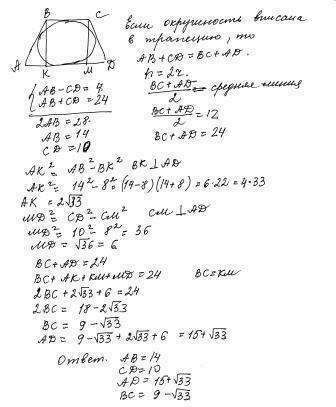 B C
A K M D
если окружность вписана
в трапецию, то
AB + CD = BC + AD.
h = 2r.
{ AB - CD = 4
AB + CD = 24
2AB = 28
AB = 14
CD = 10
BC + AD / 2 = средняя линия
BC + AD / 2 = 12
BC + AD = 24
AK² = AB² - BK² BK ⊥ AD
AK² = 14² - 8² (14-8)(14+8) = 6·22 = 4·33
AK = 2√33
MD² = CD² - CM² CM ⊥ AD
MD² = 10² - 8² = 36
MD = √36 = 6
BC + AD = 24
BC + AK + KM + MD = 24 BC = KM
2BC + 2√33 + 6 = 24
2BC = 18 - 2√33
BC = 9 - √33
AD = 9 - √33 + 2√33 + 6 = 15 + √33
Ответ. AB = 14
CD = 10
AD = 15 + √33
BC = 9 - √33